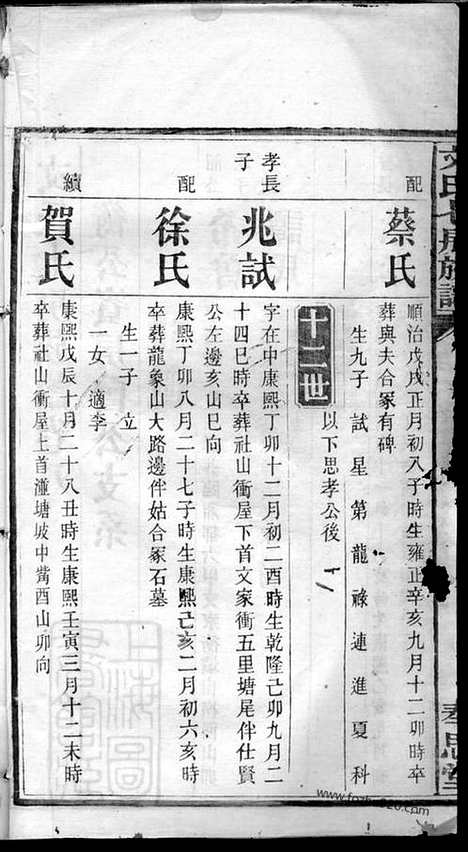 配 蔡氏
順治戊戌正月初八子時生雍正辛亥九月十二卯時卒
葬與夫合冢有碑
生九子 試 星 第 龍 祿 連 進 夏 科
十二世
以下思孝公後
孝長子 兆試
字在中康熙丁卯十二月初二酉時生乾隆己卯九月二
十四巳時卒葬社山衝屋下首文家衝五里塘尾伴仕賢
公左邊亥山巳向
配 徐氏
康熙丁卯八月二十七子時生康熙己亥二月初六亥時
卒葬龍象山大路邊伴姑合冢石墓
生一子 立
一女 適李
續 賀氏
康熙戊辰十月二十八丑時生康熙壬寅三月十二未時
卒葬社山衝屋上首潼塘坡中觜酉山卯向